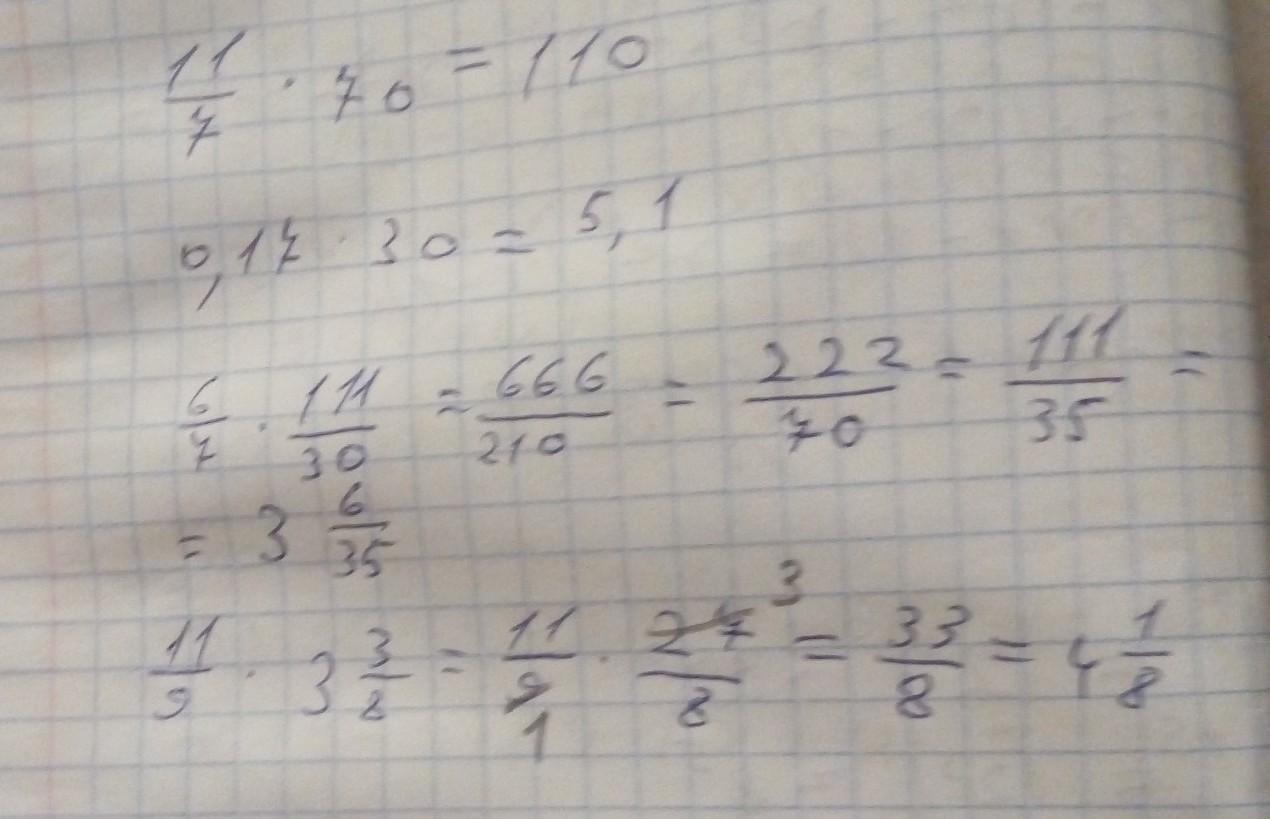 11/7 · 70 = 110
0,17 · 30 = 5,1
6/7 · 111/30 = 666/210 = 222/70 = 111/35 =
= 3 6/35
11/9 · 3 3/8 = 11/9 1 · 27/8 3 = 33/8 = 4 1/8